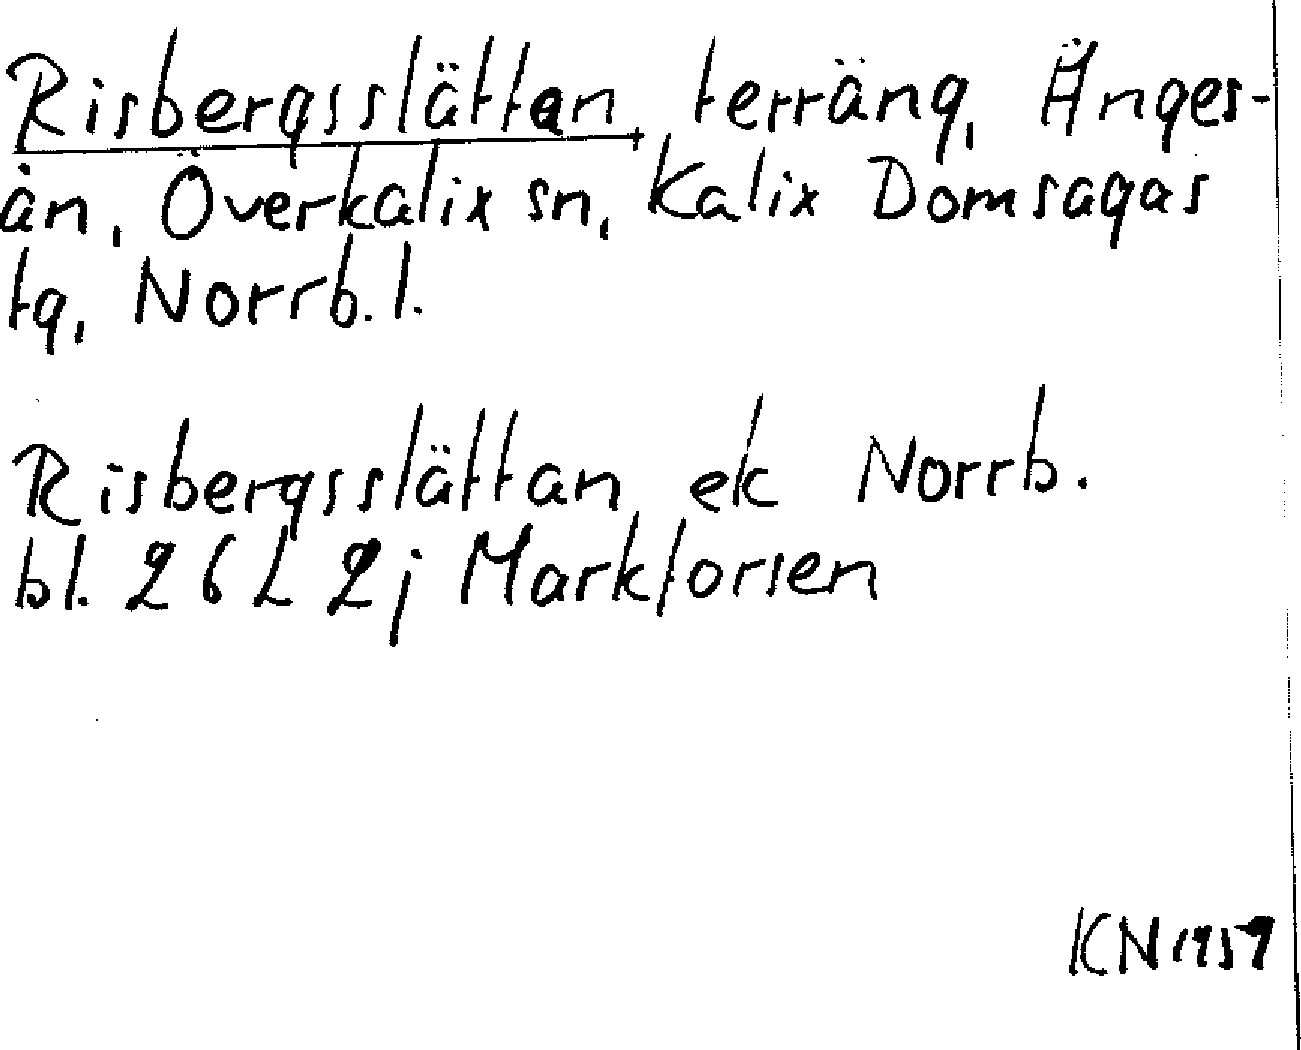 Risbergsslätten, terräng, Änges-
ån, Överkalix sn, Kalix Domsagas
tg, Norrb.l.
Risbergsslättan ek Norrb.
bl. 26 L 2j Markforsen
KN 1959